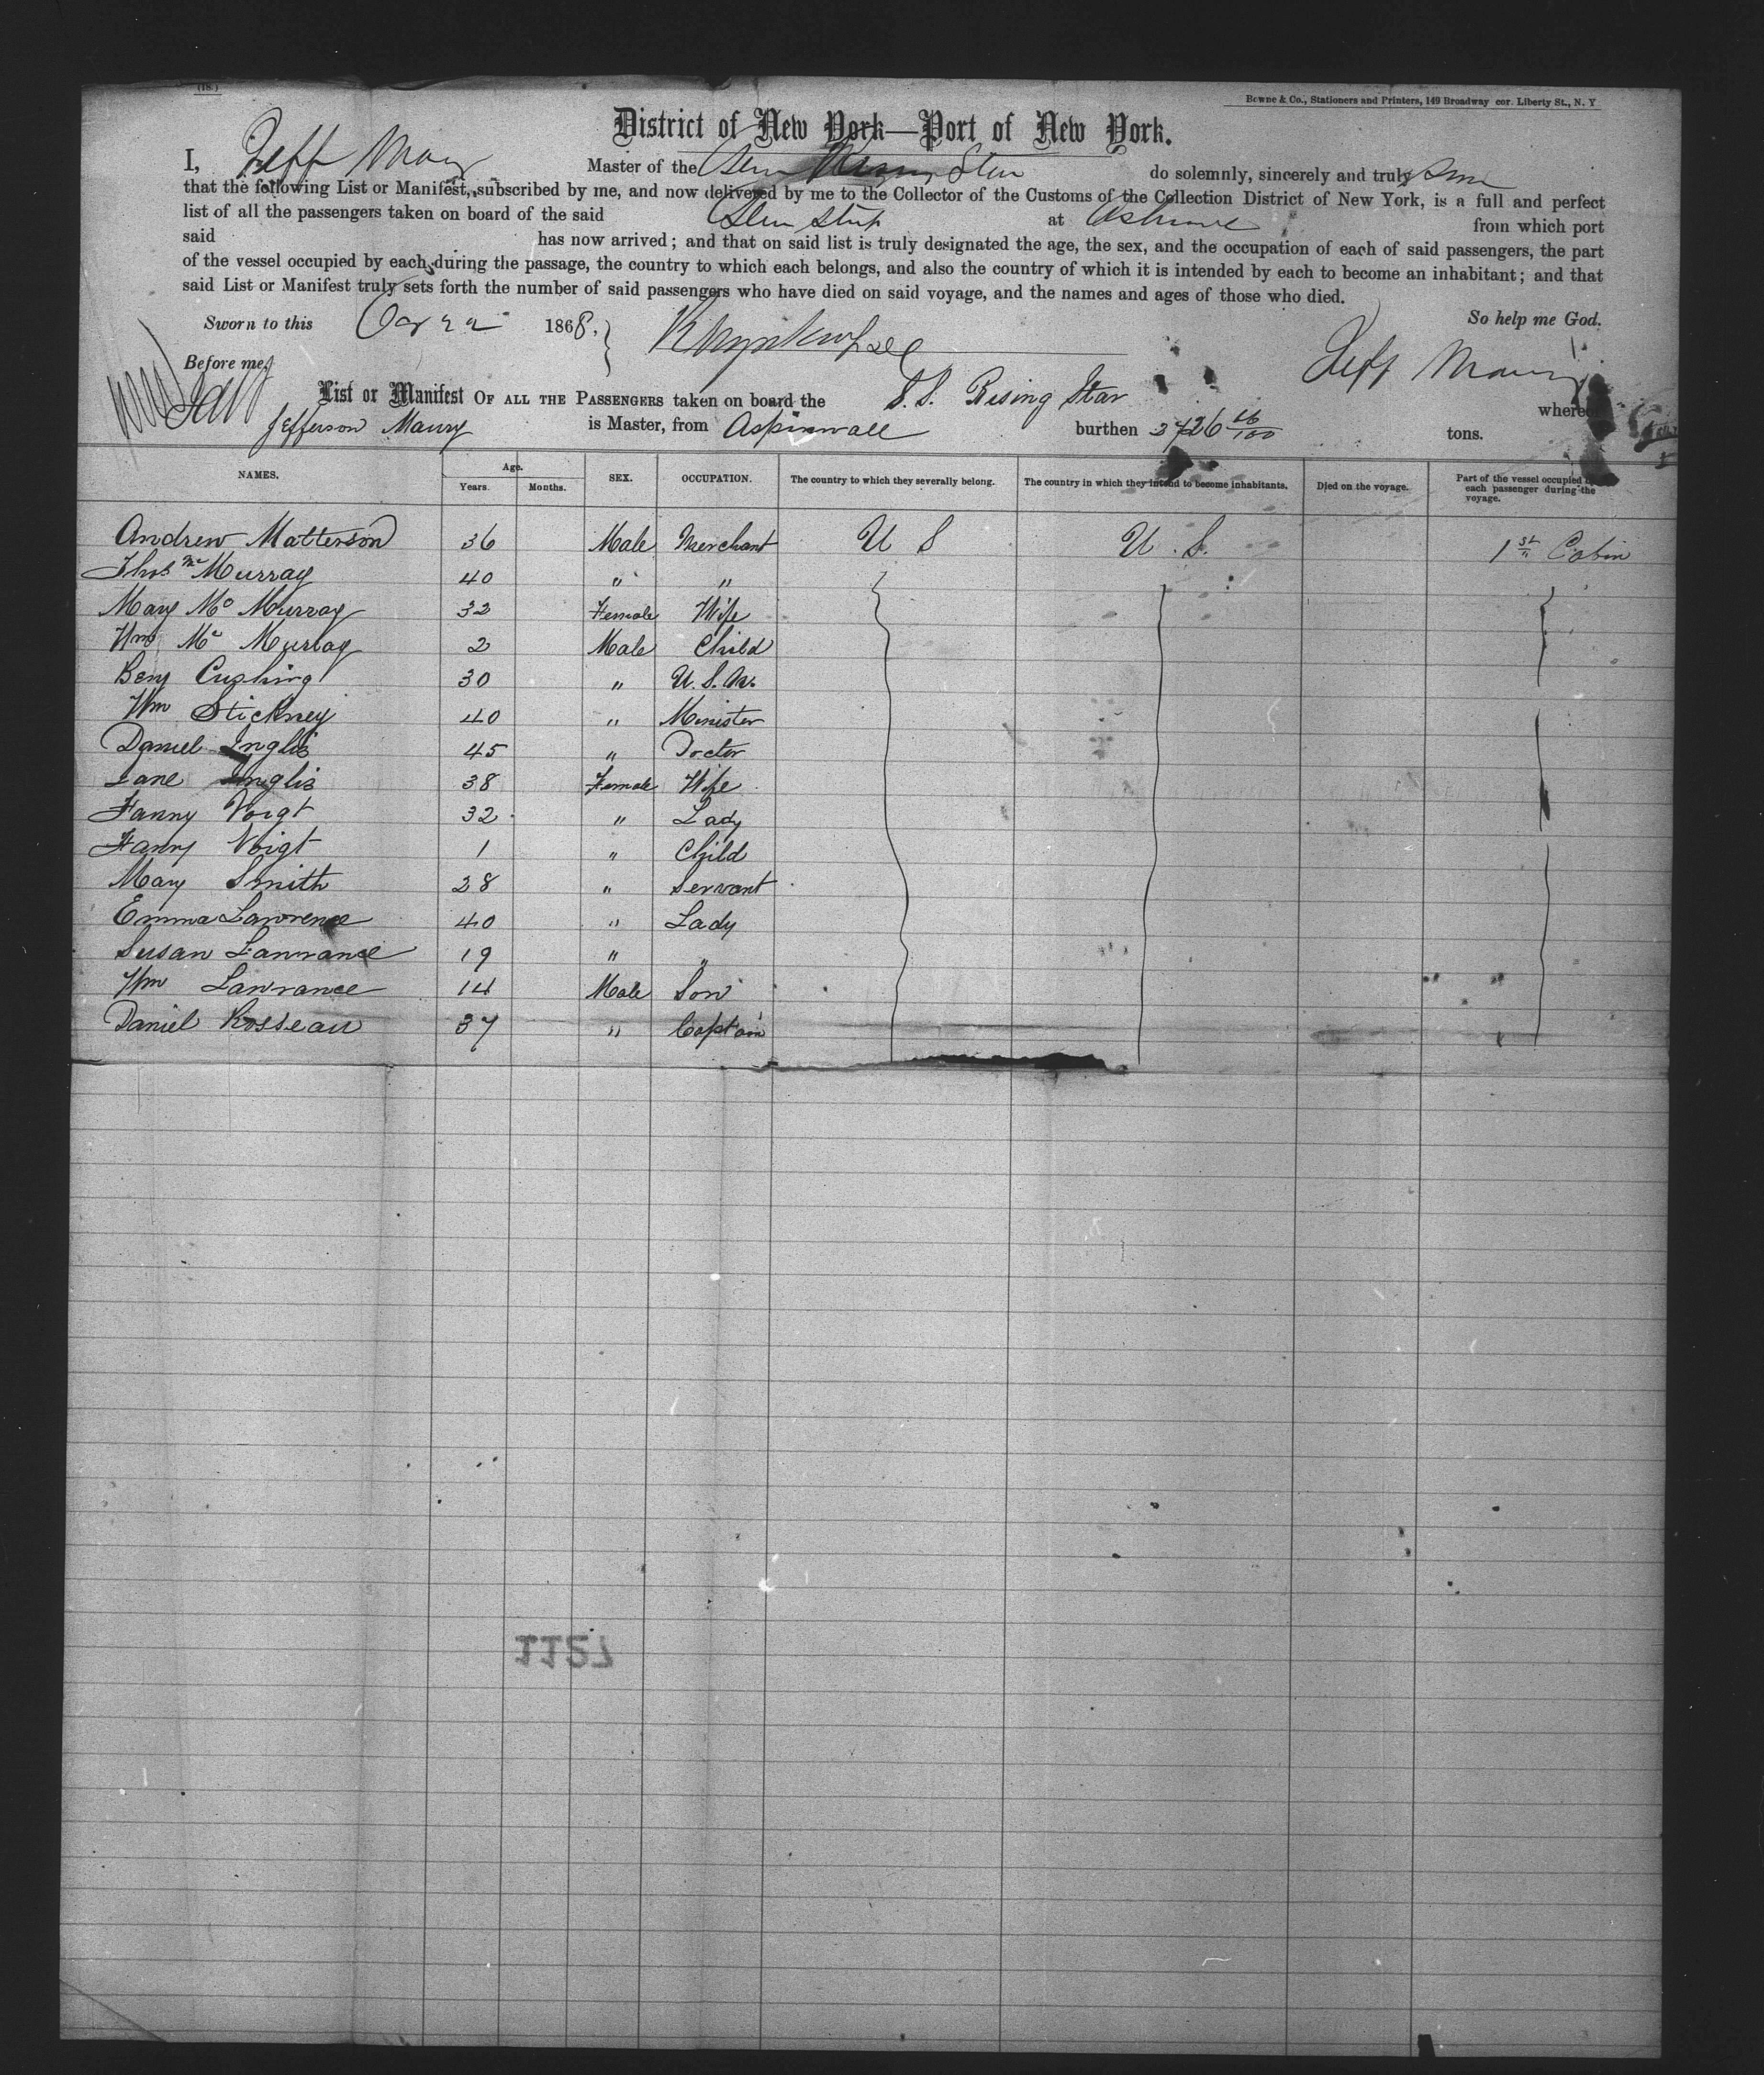 (18.)
Bowne & Co., Stationers and Printers, 149 Broadway cor. Liberty St., N. Y
District of New York—Port of New York.
I, Jeff Maury Master of the do solemnly, sincerely and truly
that the following List or Manifest, subscribed by me, and now delivered by me to the Collector of the Customs of the Collection District of New York, is a full and perfect
list of all the passengers taken on board of the said at from which port
said has now arrived; and that on said list is truly designated the age, the sex, and the occupation of each of said passengers, the part
of the vessel occupied by each during the passage, the country to which each belongs, and also the country of which it is intended by each to become an inhabitant; and that
said List or Manifest truly sets forth the number of said passengers who have died on said voyage, and the names and ages of those who died.
Sworn to this 22 1868. So help me God.
Before me, Jeff Maury
List or Manifest OF ALL THE PASSENGERS taken on board the S.S. Rising Star whereof
Jefferson Maury is Master, from Aspinwall burthen 2726 16/100 tons.
NAMES. Age. Years. Months. SEX. OCCUPATION. The country to which they severally belong. The country in which they intend to become inhabitants. Died on the voyage. Part of the vessel occupied by each passenger during the voyage.
Andrew Matterson 36 Male Merchant U S U.S. 1st Cabin
Thos Mc Murray 40 " "
Mary Mc Murray 32 Female Wife
Wm Mc Murray 2 Male Child
Benj Cushing 30 " U.S.N.
Wm Stickney 40 " Minister
Daniel Inglis 45 " Doctor
Jane Inglis 38 Female Wife
Fanny Voigt 32 " Lady
Fanny Voigt 1 " Child
Mary Smith 28 " Servant
Emma Lawrence 40 " Lady
Susan Lawrance 19 " "
Wm Lawrance 14 Male Son
Daniel Rosseau 37 " Captain
1127